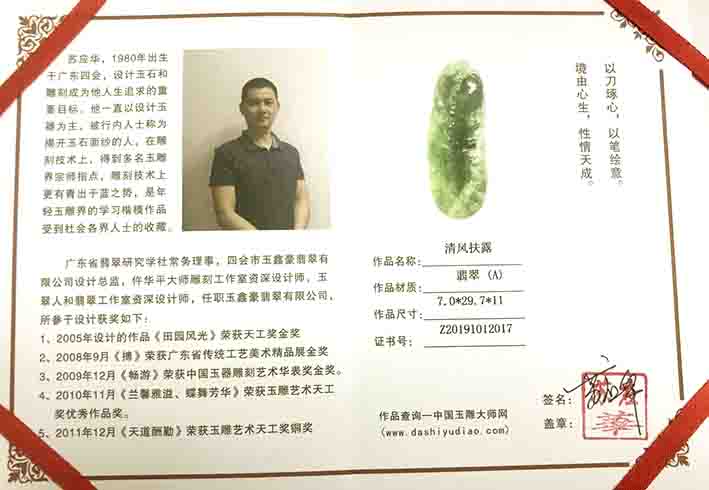 苏应华，1980年出生
于广东四会，设计玉石和
雕刻成为他人生追求的重
要目标。他一直以设计玉
器为主，被行内人士称为
揭开玉石面纱的人，在雕
刻技术上，得到多名玉雕
界宗师指点，雕刻技术上
更有青出于蓝之势，是年
轻玉雕界的学习楷模作品
受到社会各界人士的收藏。
广东省翡翠研究学社常务理事，四会市玉鑫豪翡翠有
限公司设计总监，仵华平大师雕刻工作室资深设计师，玉
翠人和翡翠工作室资深设计师，任职玉鑫豪翡翠有限公司，
所参于设计获奖如下：
1、2005年设计的作品《田园风光》荣获天工奖金奖
2、2008年9月《搏》荣获广东省传统工艺美术精品展金奖
3、2009年12月《畅游》荣获中国玉器雕刻艺术华表奖金奖。
4、2010年11月《兰馨雅溢、蝶舞芳华》荣获玉雕艺术天工
奖优秀作品奖。
5、2011年12月《天道酬勤》荣获玉雕艺术天工奖铜奖
以刀琢心，以笔绘意。
境由心生，性情天成。
作品名称：清风扶露
作品材质：翡翠 (A)
作品尺寸：7.0*29.7*11
证书号：Z20191012017
作品查询—中国玉雕大师网
(www.dashiyudiao.com)
签名：
盖章：